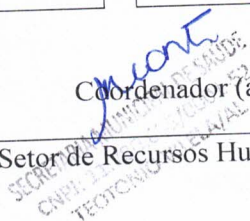 Coordenador (a
Setor de Recursos Hu
SECRETARIA MUNICIPAL DE SAÚDE
CNPJ:
TEOTONIO VILELA/AL